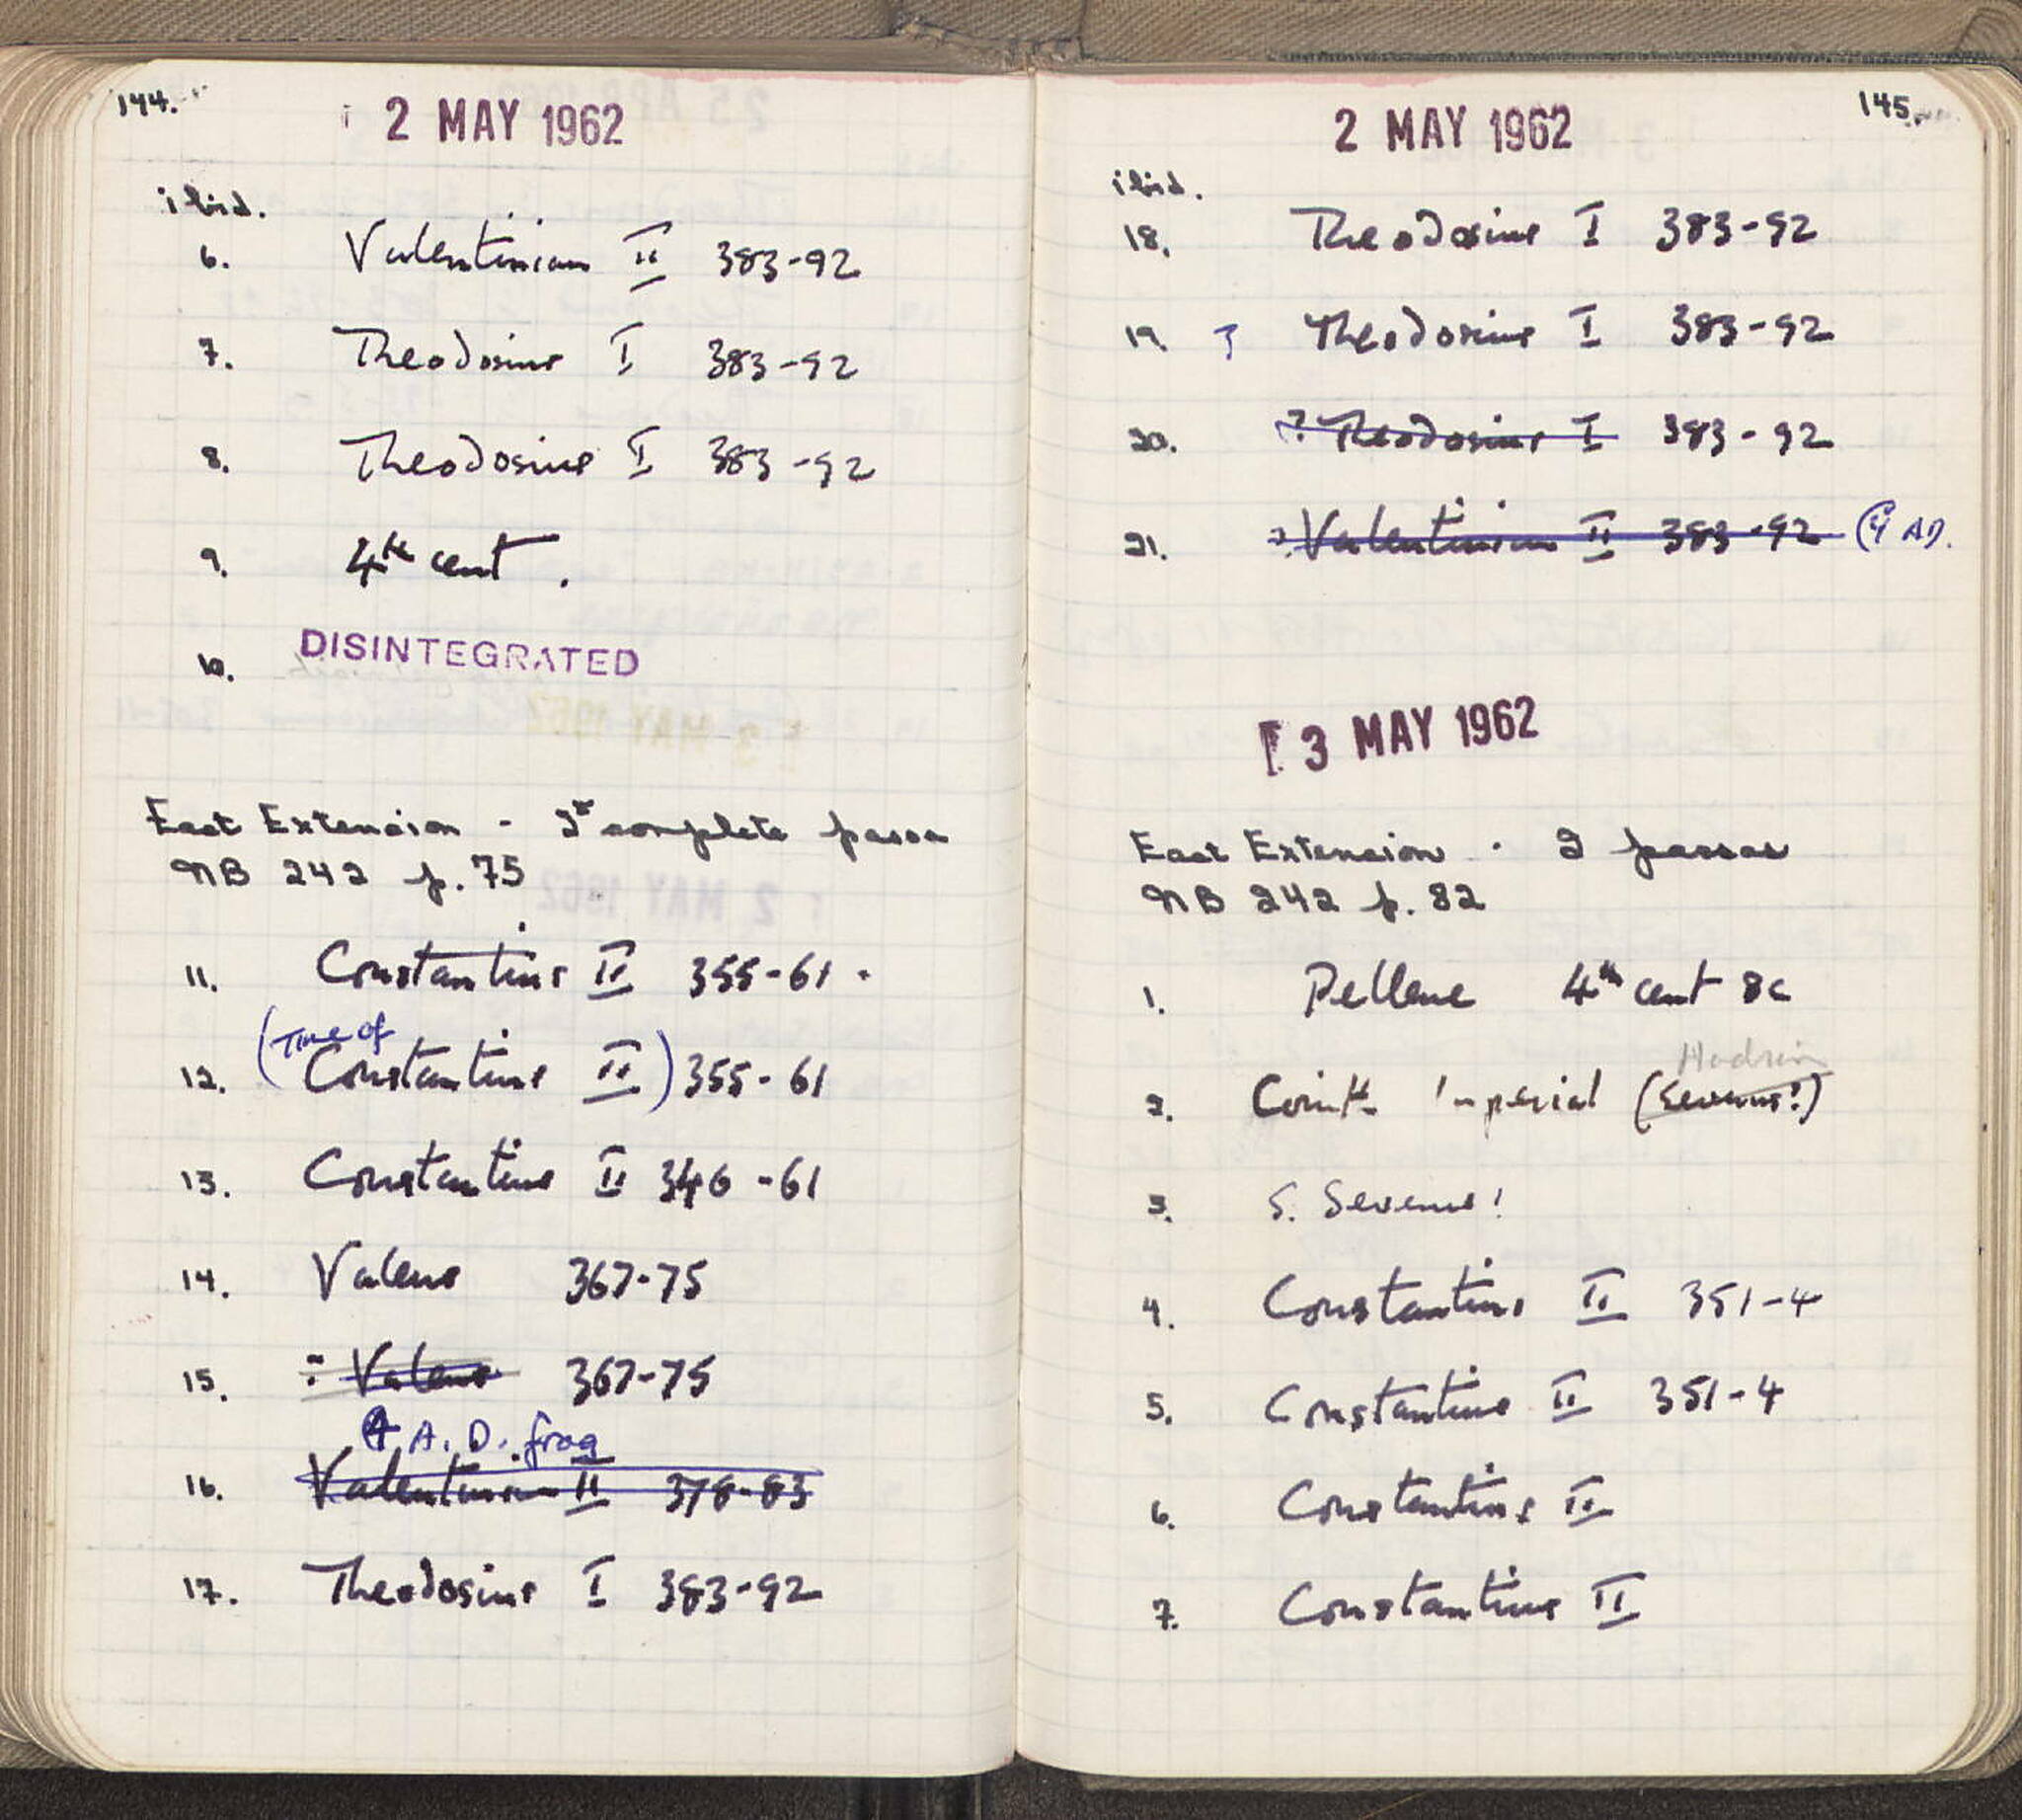 144.
2 MAY 1962
ibid.
6. Valentinian II 383-92
7. Theodosius I 383-92
8. Theodosius I 383-92
9. 4th cent.
10. DISINTEGRATED
East Extension - complete passa
NB 242 p. 75
11. Constantius II 355-61.
(Time of
12. Constantius II) 355-61
13. Constantius II 346-61
14. Valens 367-75
15. Valens 367-75
4 A.D. frag
16. Valentinian II 378-83
17. Theodosius I 383-92
145.
2 MAY 1962
ibid.
18. Theodosius I 383-92
19. Theodosius I 383-92
20. ? Theodosius I 383-92
21. ? Valentinian II 383-92 (4 AD.
3 MAY 1962
East Extension - 2 passas
NB 242 p. 82
1. Pellene 4th cent BC
Hadrian
2. Corinth Imperial (Severus?)
3. S. Severus?
4. Constantius II 351-4
5. Constantius II 351-4
6. Constantius II
7. Constantius II